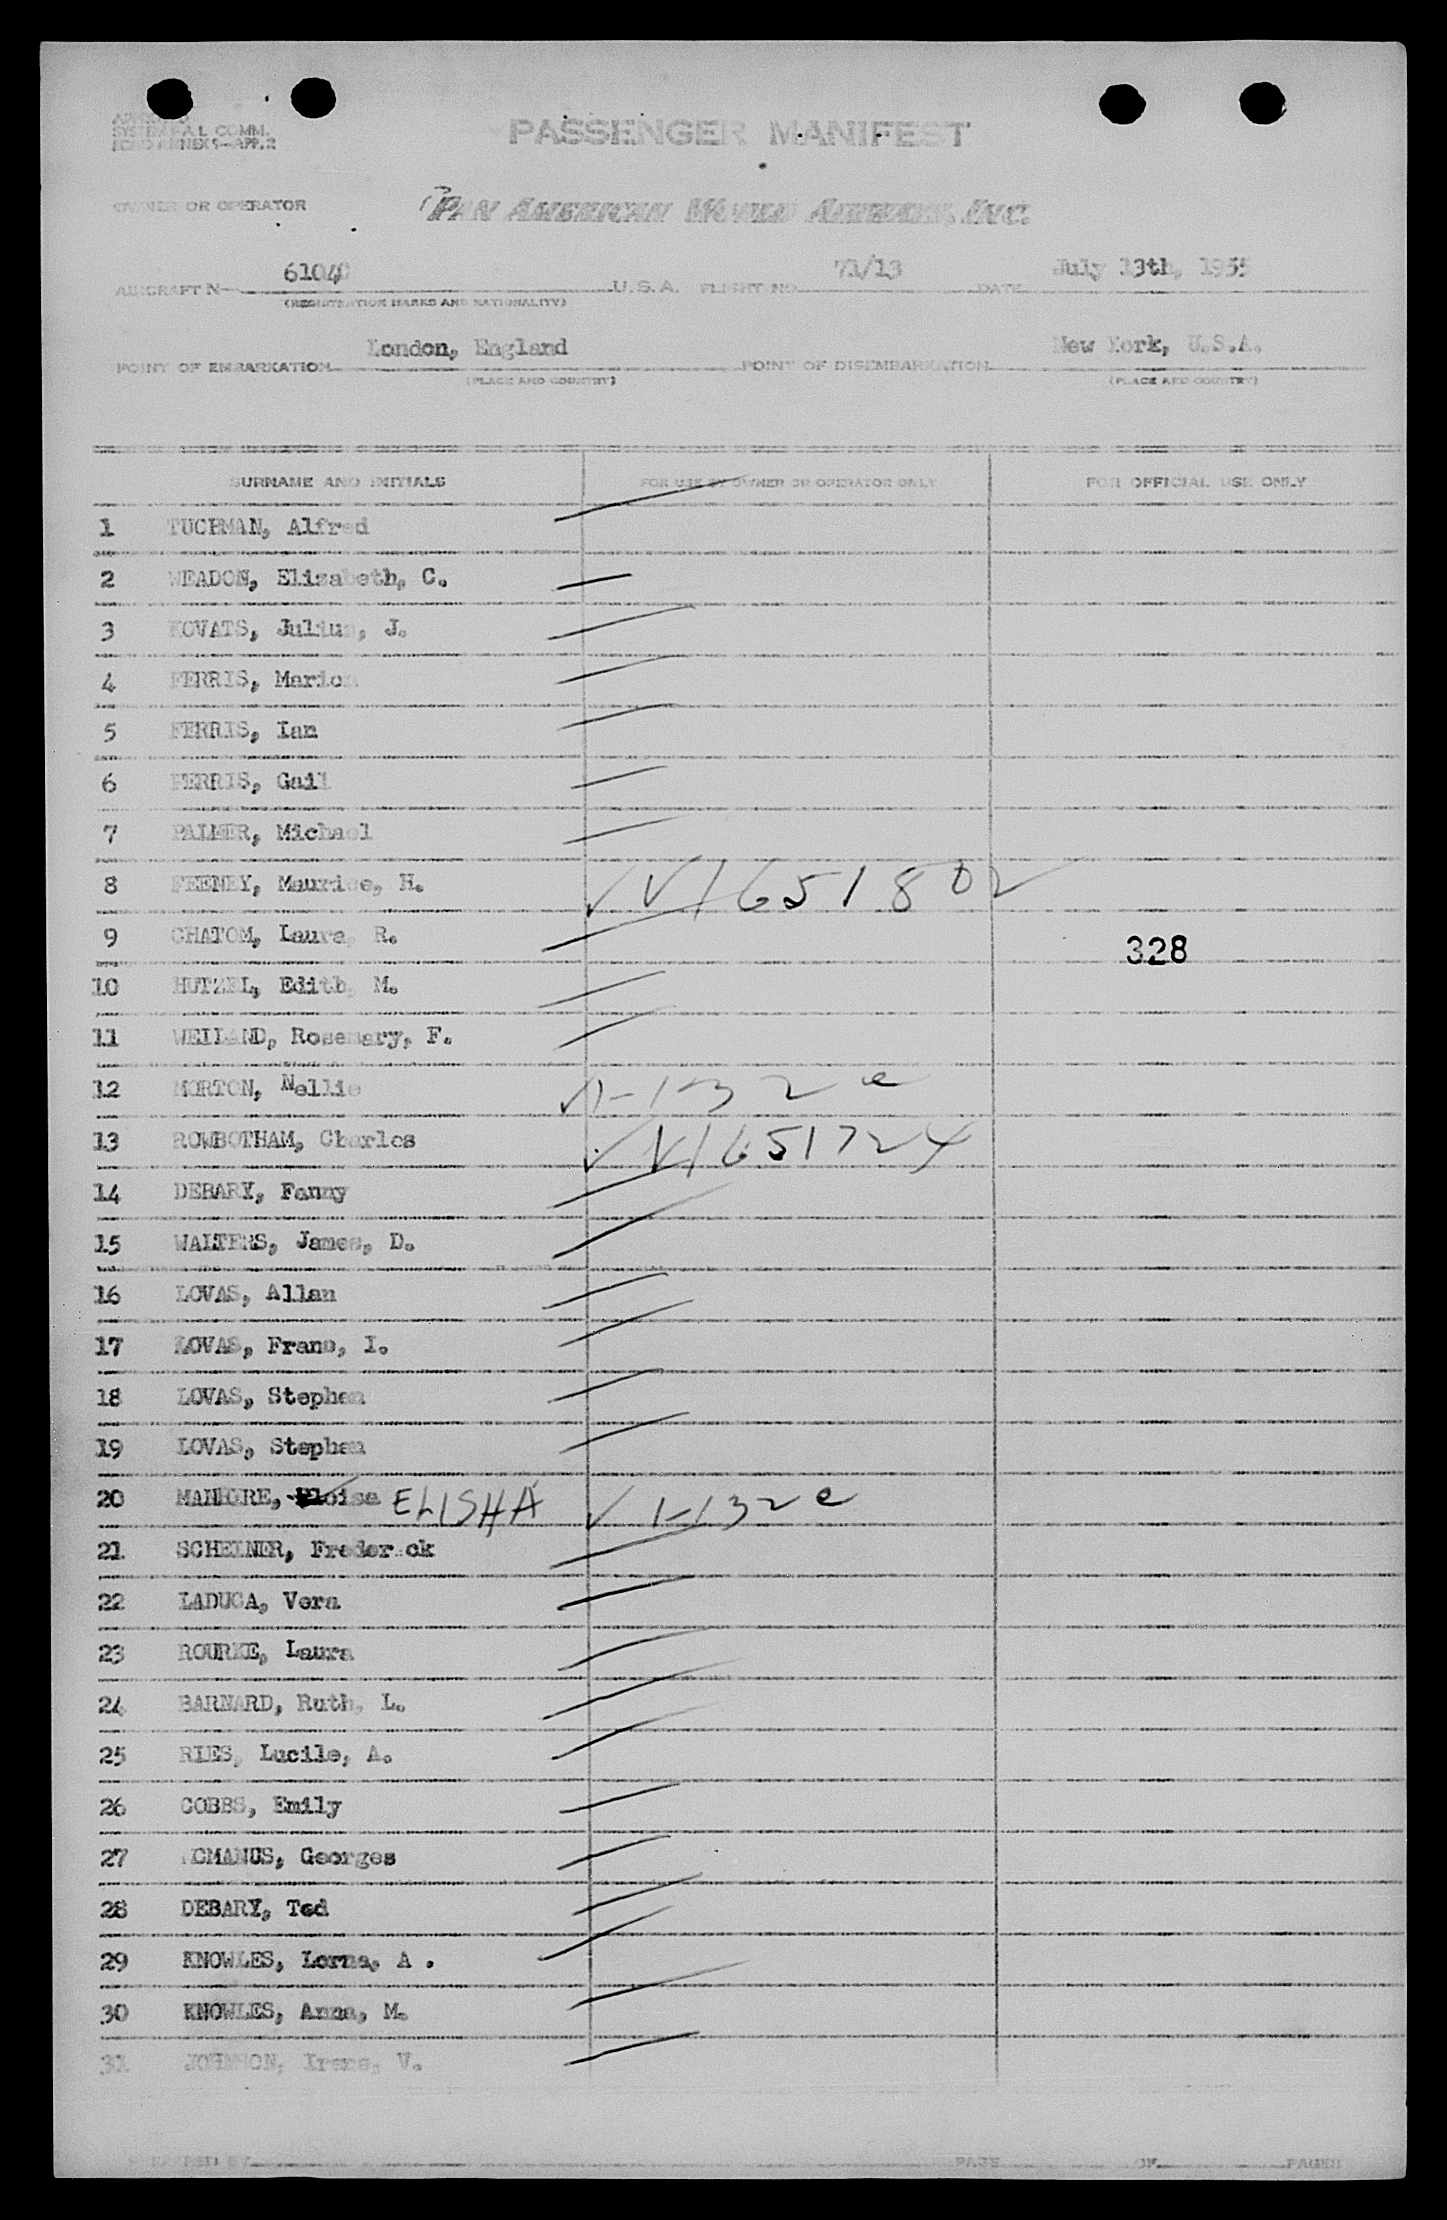 APPROVED
SYSTEM F.A.L. COMM.
ICAO ANNEX 9—APP. 2
PASSENGER MANIFEST
OWNER OR OPERATOR PAN AMERICAN WORLD AIRWAYS, INC.
AIRCRAFT N 61040 U.S.A. FLIGHT NO. 71/13 DATE July 13th, 1955
(REGISTRATION MARKS AND NATIONALITY)
POINT OF EMBARKATION London, England POINT OF DISEMBARKATION New York, U.S.A.
(PLACE AND COUNTRY) (PLACE AND COUNTRY)
SURNAME AND INITIALS FOR USE BY OWNER OR OPERATOR ONLY FOR OFFICIAL USE ONLY
1 TUCHMAN, Alfred
2 WEADON, Elizabeth, C.
3 KOVATS, Julius, J.
4 FERRIS, Marion
5 FERRIS, Ian
6 FERRIS, Gail
7 PALMER, Michael
8 FEENEY, Maurice, H. ✓ V1651802
9 CHATOM, Laura, R. 328
10 HUTZEL, Edith, M.
11 WEILAND, Rosemary, F.
12 MORTON, Nellie ✓ 1-132 e
13 ROWBOTHAM, Charles ✓ V1651724
14 DEBARY, Fanny
15 WALTERS, James, D.
16 LOVAS, Allan
17 LOVAS, Frans, I.
18 LOVAS, Stephen
19 LOVAS, Stephen
20 MANHORE, Eloise ELISHA ✓ 1-132 e
21 SCHEINER, Frederick
22 LADUCA, Vera
23 ROURKE, Laura
24 BARNARD, Ruth, L.
25 RIES, Lucile, A.
26 COBBS, Emily
27 ROMANUS, Georges
28 DEBARY, Ted
29 KNOWLES, Lorna, A .
30 KNOWLES, Anna, M.
31 JOHNSON, Irene, V.
PREPARED BY PAGE OF PAGES